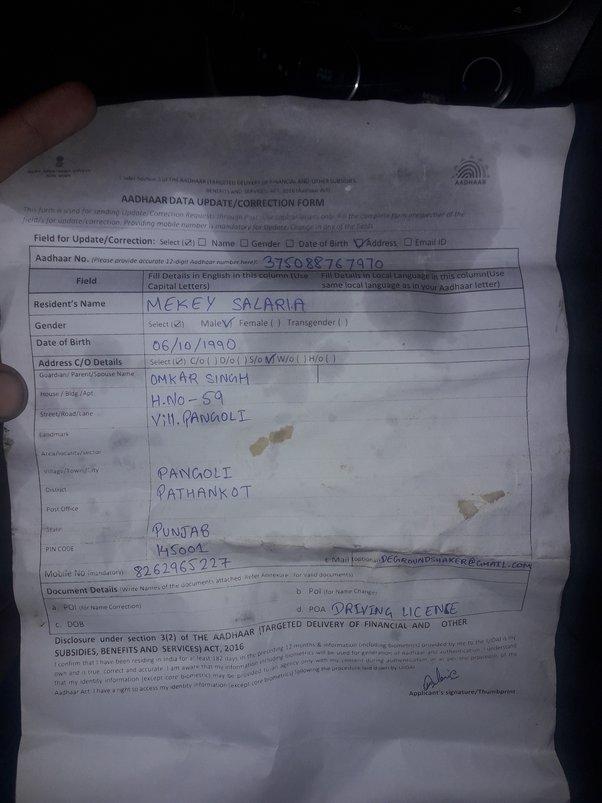 Under Section 3 OF THE AADHAAR (TARGETED DELIVERY OF FINANCIAL AND OTHER SUBSIDIES,
BENEFITS AND SERVICES) ACT, 2016 (Aadhaar Act)
AADHAAR
AADHAAR DATA UPDATE/CORRECTION FORM
This form is used for sending Update/Correction Requests through Post. Use capital letters only. Fill the complete form irrespective of the
field/s for update/correction. Providing mobile number is mandatory for Update/ Change in any of the fields
Field for Update/Correction: Select (☑) ☐ Name ☐ Gender ☐ Date of Birth ☑ Address ☐ Email ID
Aadhaar No. (Please provide accurate 12-digit Aadhaar number here): 375088767970
Field Fill Details in English in this column (Use Capital Letters) Fill Details in Local Language in this column(Use same local language as in your Aadhaar letter)
Resident's Name MEKEY SALARIA
Gender Select (☑) Male ✓ Female ( ) Transgender ( )
Date of Birth 06/10/1990
Address C/O Details Select (☑) C/o ( ) D/o ( ) S/o ✓ W/o ( ) H/o ( )
Guardian/ Parent/Spouse Name OMKAR SINGH
House / Bldg./Apt H.No-59
Street/Road/Lane Vill. PANGOLI
Landmark
Area/locality/sector
Village/Town/City PANGOLI
District PATHANKOT
Post Office
State PUNJAB
PIN CODE 145001
Mobile No (mandatory): 8262965227 E-Mail (optional) DEGROUNDSHAKER@GMAIL.COM
Document Details (Write Names of the documents attached. Refer Annexure for valid documents)
a. POI (for Name Correction) b. POI (for Name Change)
c. DOB d. POA DRIVING LICENCE
Disclosure under section 3(2) of THE AADHAAR (TARGETED DELIVERY OF FINANCIAL AND OTHER
SUBSIDIES, BENEFITS AND SERVICES) ACT, 2016
I confirm that I have been residing in India for at least 182 days in the preceding 12 months & information (including biometrics) provided by me to the UIDAI is my
own and is true, correct and accurate. I am aware that my information including biometrics will be used for generation of Aadhaar and authentication. I understand
that my identity information (except core biometric) may be provided to an agency only with my consent during authentication or as per the provisions of the
Aadhaar Act. I have a right to access my identity information (except core biometrics) following the procedure laid down by UIDAI
Applicant's signature/Thumbprint